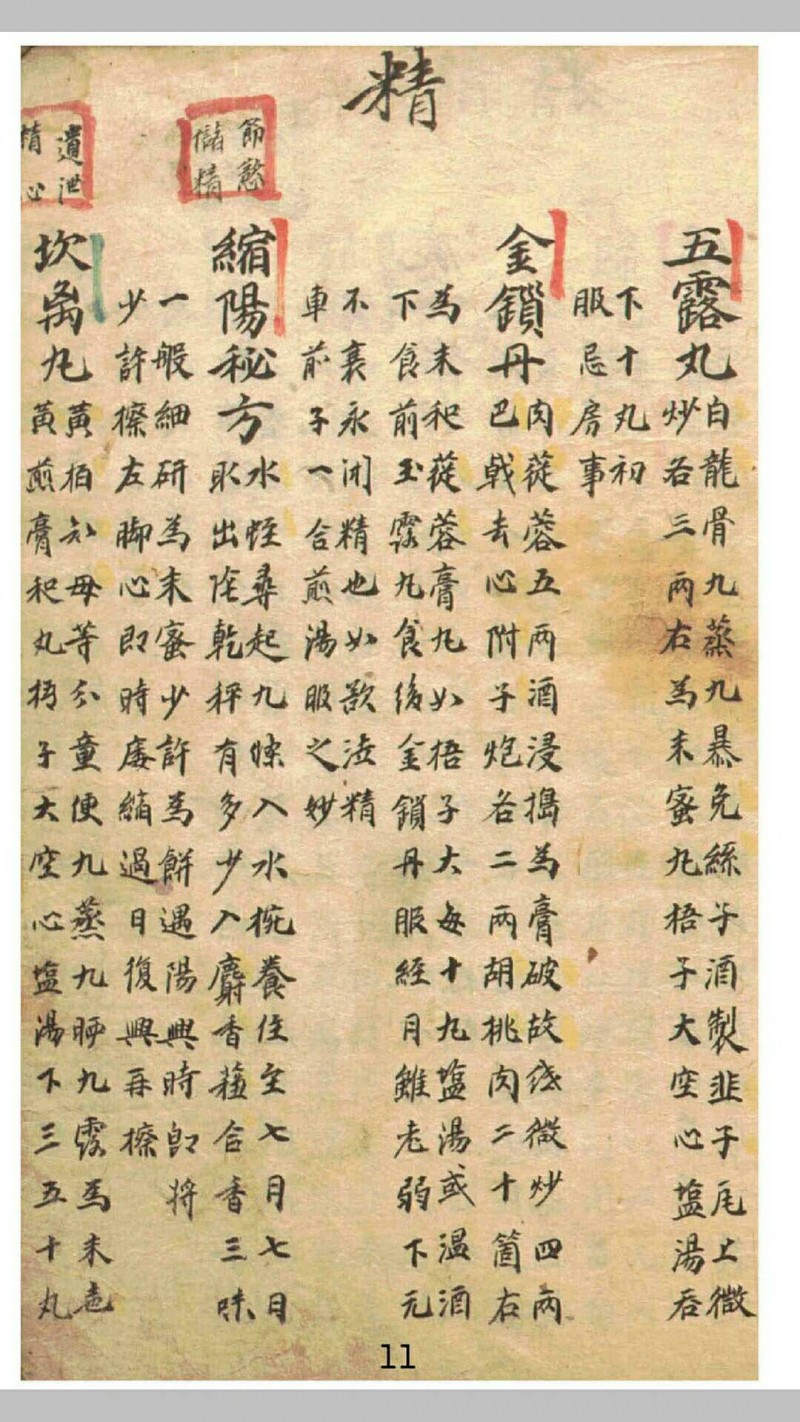 精
五露丸
白龍骨九蒸九暴免絲子酒製韭子尾上微
炒各三兩右為末蜜九梧子大空心塩湯吞
下十丸初
服忌房事
金鎖丹
肉蓯蓉五兩酒浸搗為膏破故紙微炒四兩
巴戟去心附子炮各二兩胡桃肉二十箇右
為末和蓯蓉膏九如梧子大每十九塩湯或温酒
下食前玉露九食後金鎖丹服經月雖老弱下元
不衰永闭精也如欲泄精
車前子一合煎湯服之妙
節慾
儲精
縮陽秘方
水蛭尋起九條入水椀養住至七月七日
取出陰乾秤有多少入麝香蘓合香三味
一般細研為末蜜少許為餅遇陽興時即将
少許擦左脚心即時痿縮過日復興再擦
遺泄
精心
坎离丸
黃柏知母等分童便九蒸九晒九露為末
黃煎膏和丸梧子大空心塩湯下三五十丸
11